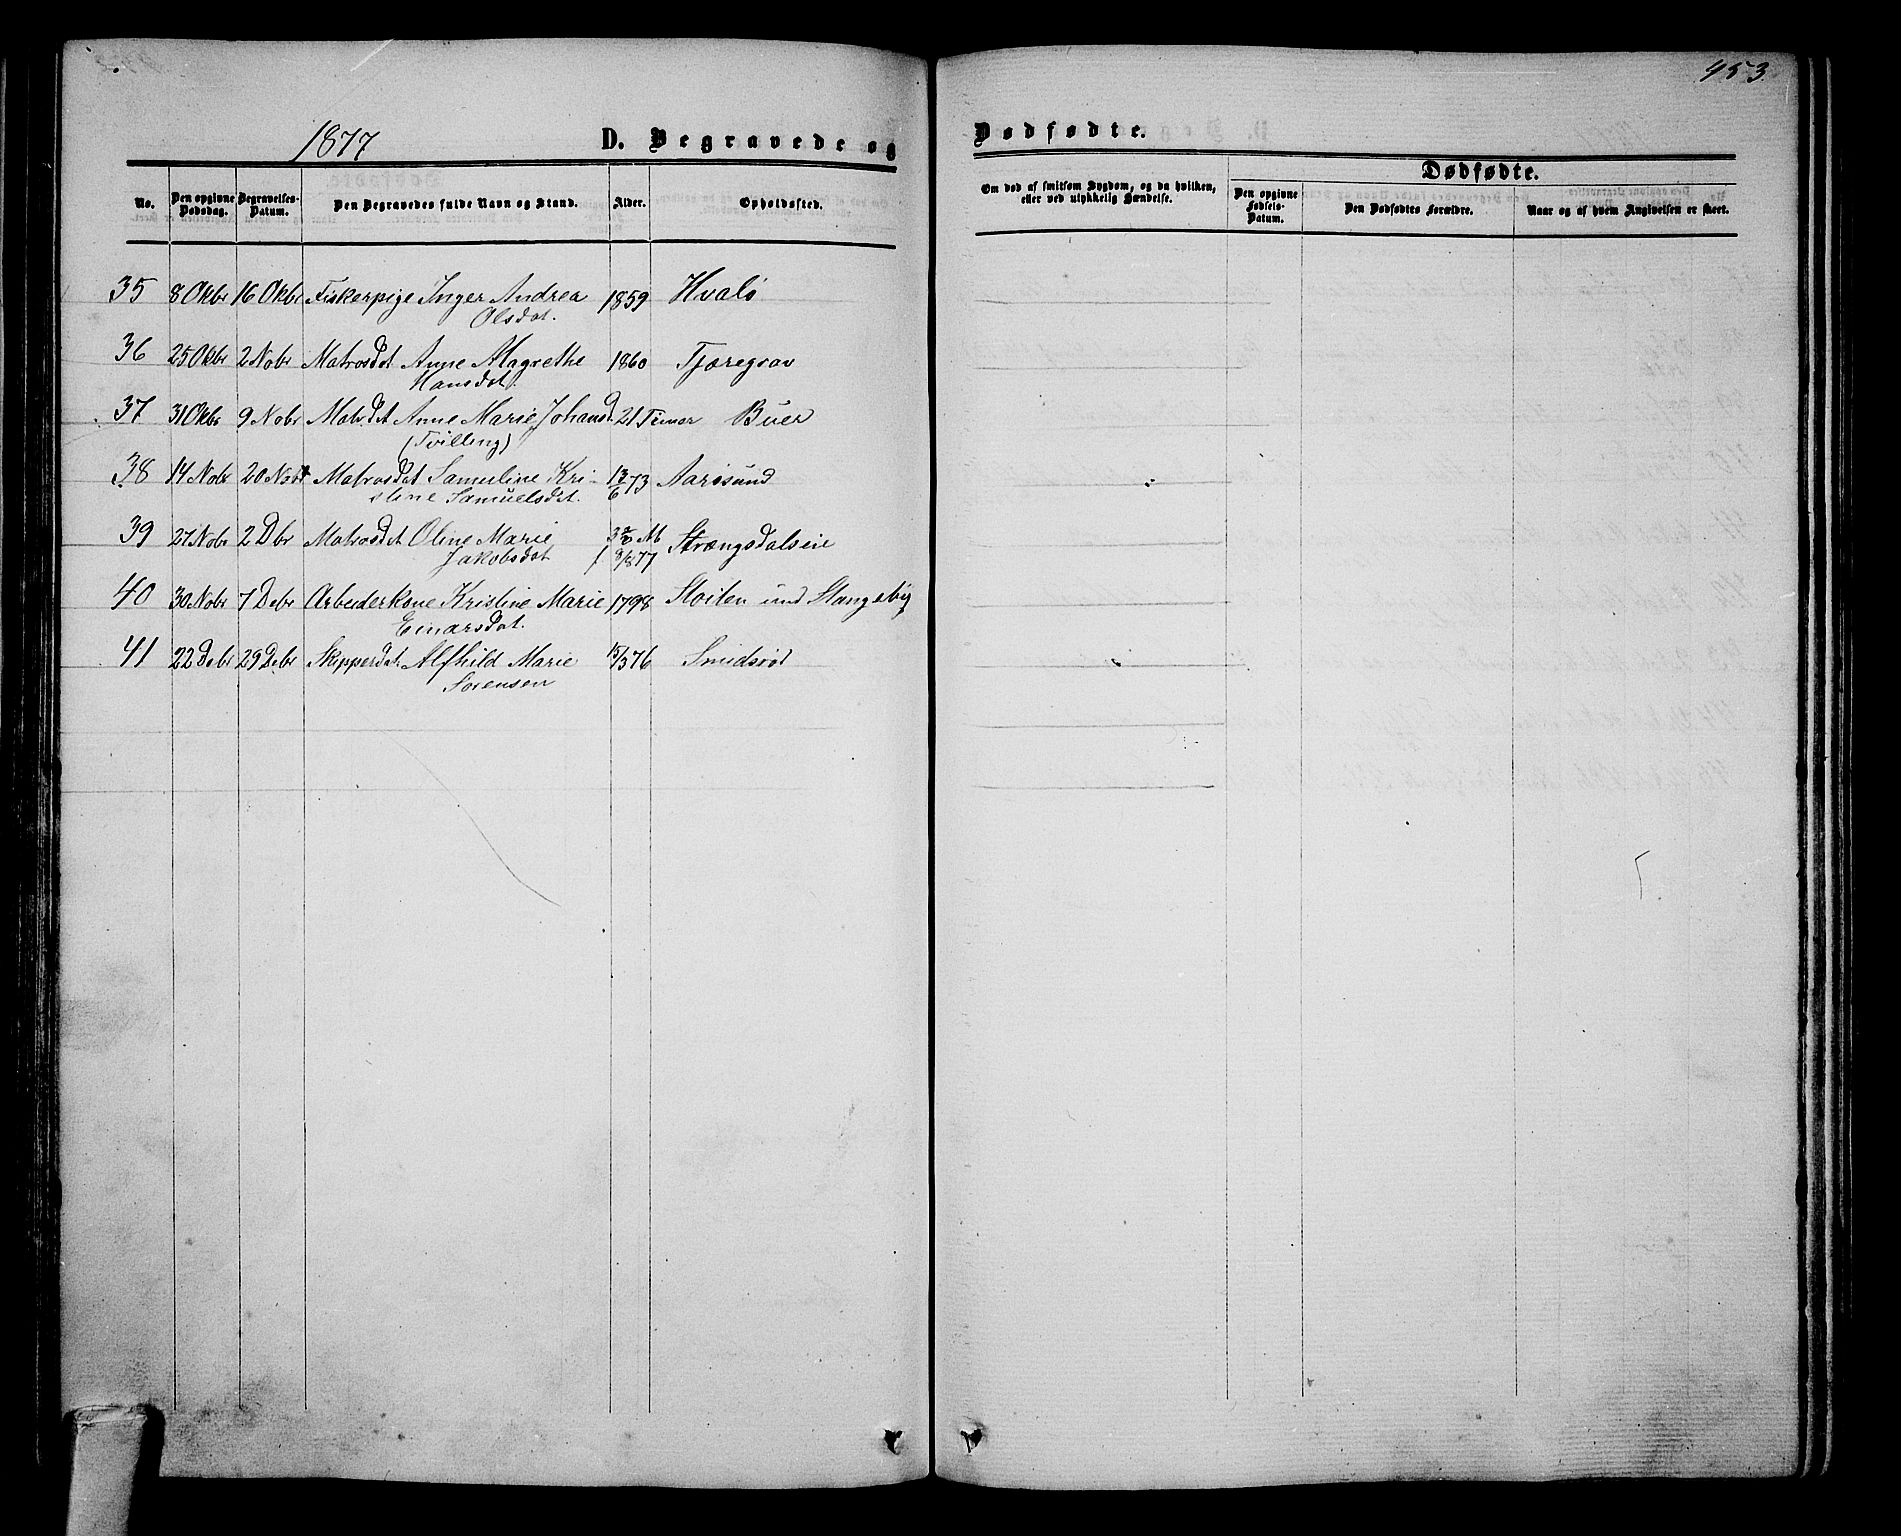 453.
1877
D. Begravede og Dødfødte.
No.
Den opgivne Dødsdag.
Begravelses-Datum.
Den Begravedes fulde Navn og Stand.
Alder.
Opholdssted.
Om død af smitsom Sygdom, og da hvilken, eller ved ulykkelig Hændelse.
Dødfødte.
Den opgivne Fødsels-Datum.
Den Dødfødtes Forældre.
Naar og af hvem Angivelsen er skeet.
35 8 Okbr 16 Okbr Fiskerpige Inger Andrea 1859 Hvalø
Olsdat.
36 25 Okbr 2 Nobr Matrosdat Anne Magrethe 1860 Tjøregrav
Hansdat.
37 31 Okbr 9 Nobr Matr.dat Anne Marie Johansd. 21 Timer Buer
(Tvilling)
38 14 Nobr 20 Nobr Matrosdat Samuline Kri- 13/6 73 Aarøsund
stine Samuelsdat.
39 27 Nobr 2 Dbr Matrosdat Oline Marie
Jakobsdat f 9/8 77 Strængsdalseie
40 30 Nobr 7 Debr Arbeiderkone Kristine Marie 1798 Stoiten und Stangeby
Einarsdat.
41 22 Debr 29 Debr Skipperdat Alfhild Marie 15/3 76 Smidsrød
Sørensen